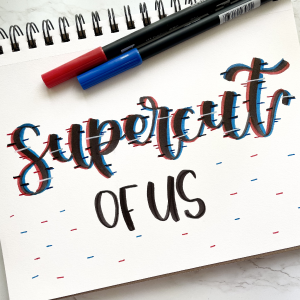 supercut
OF US